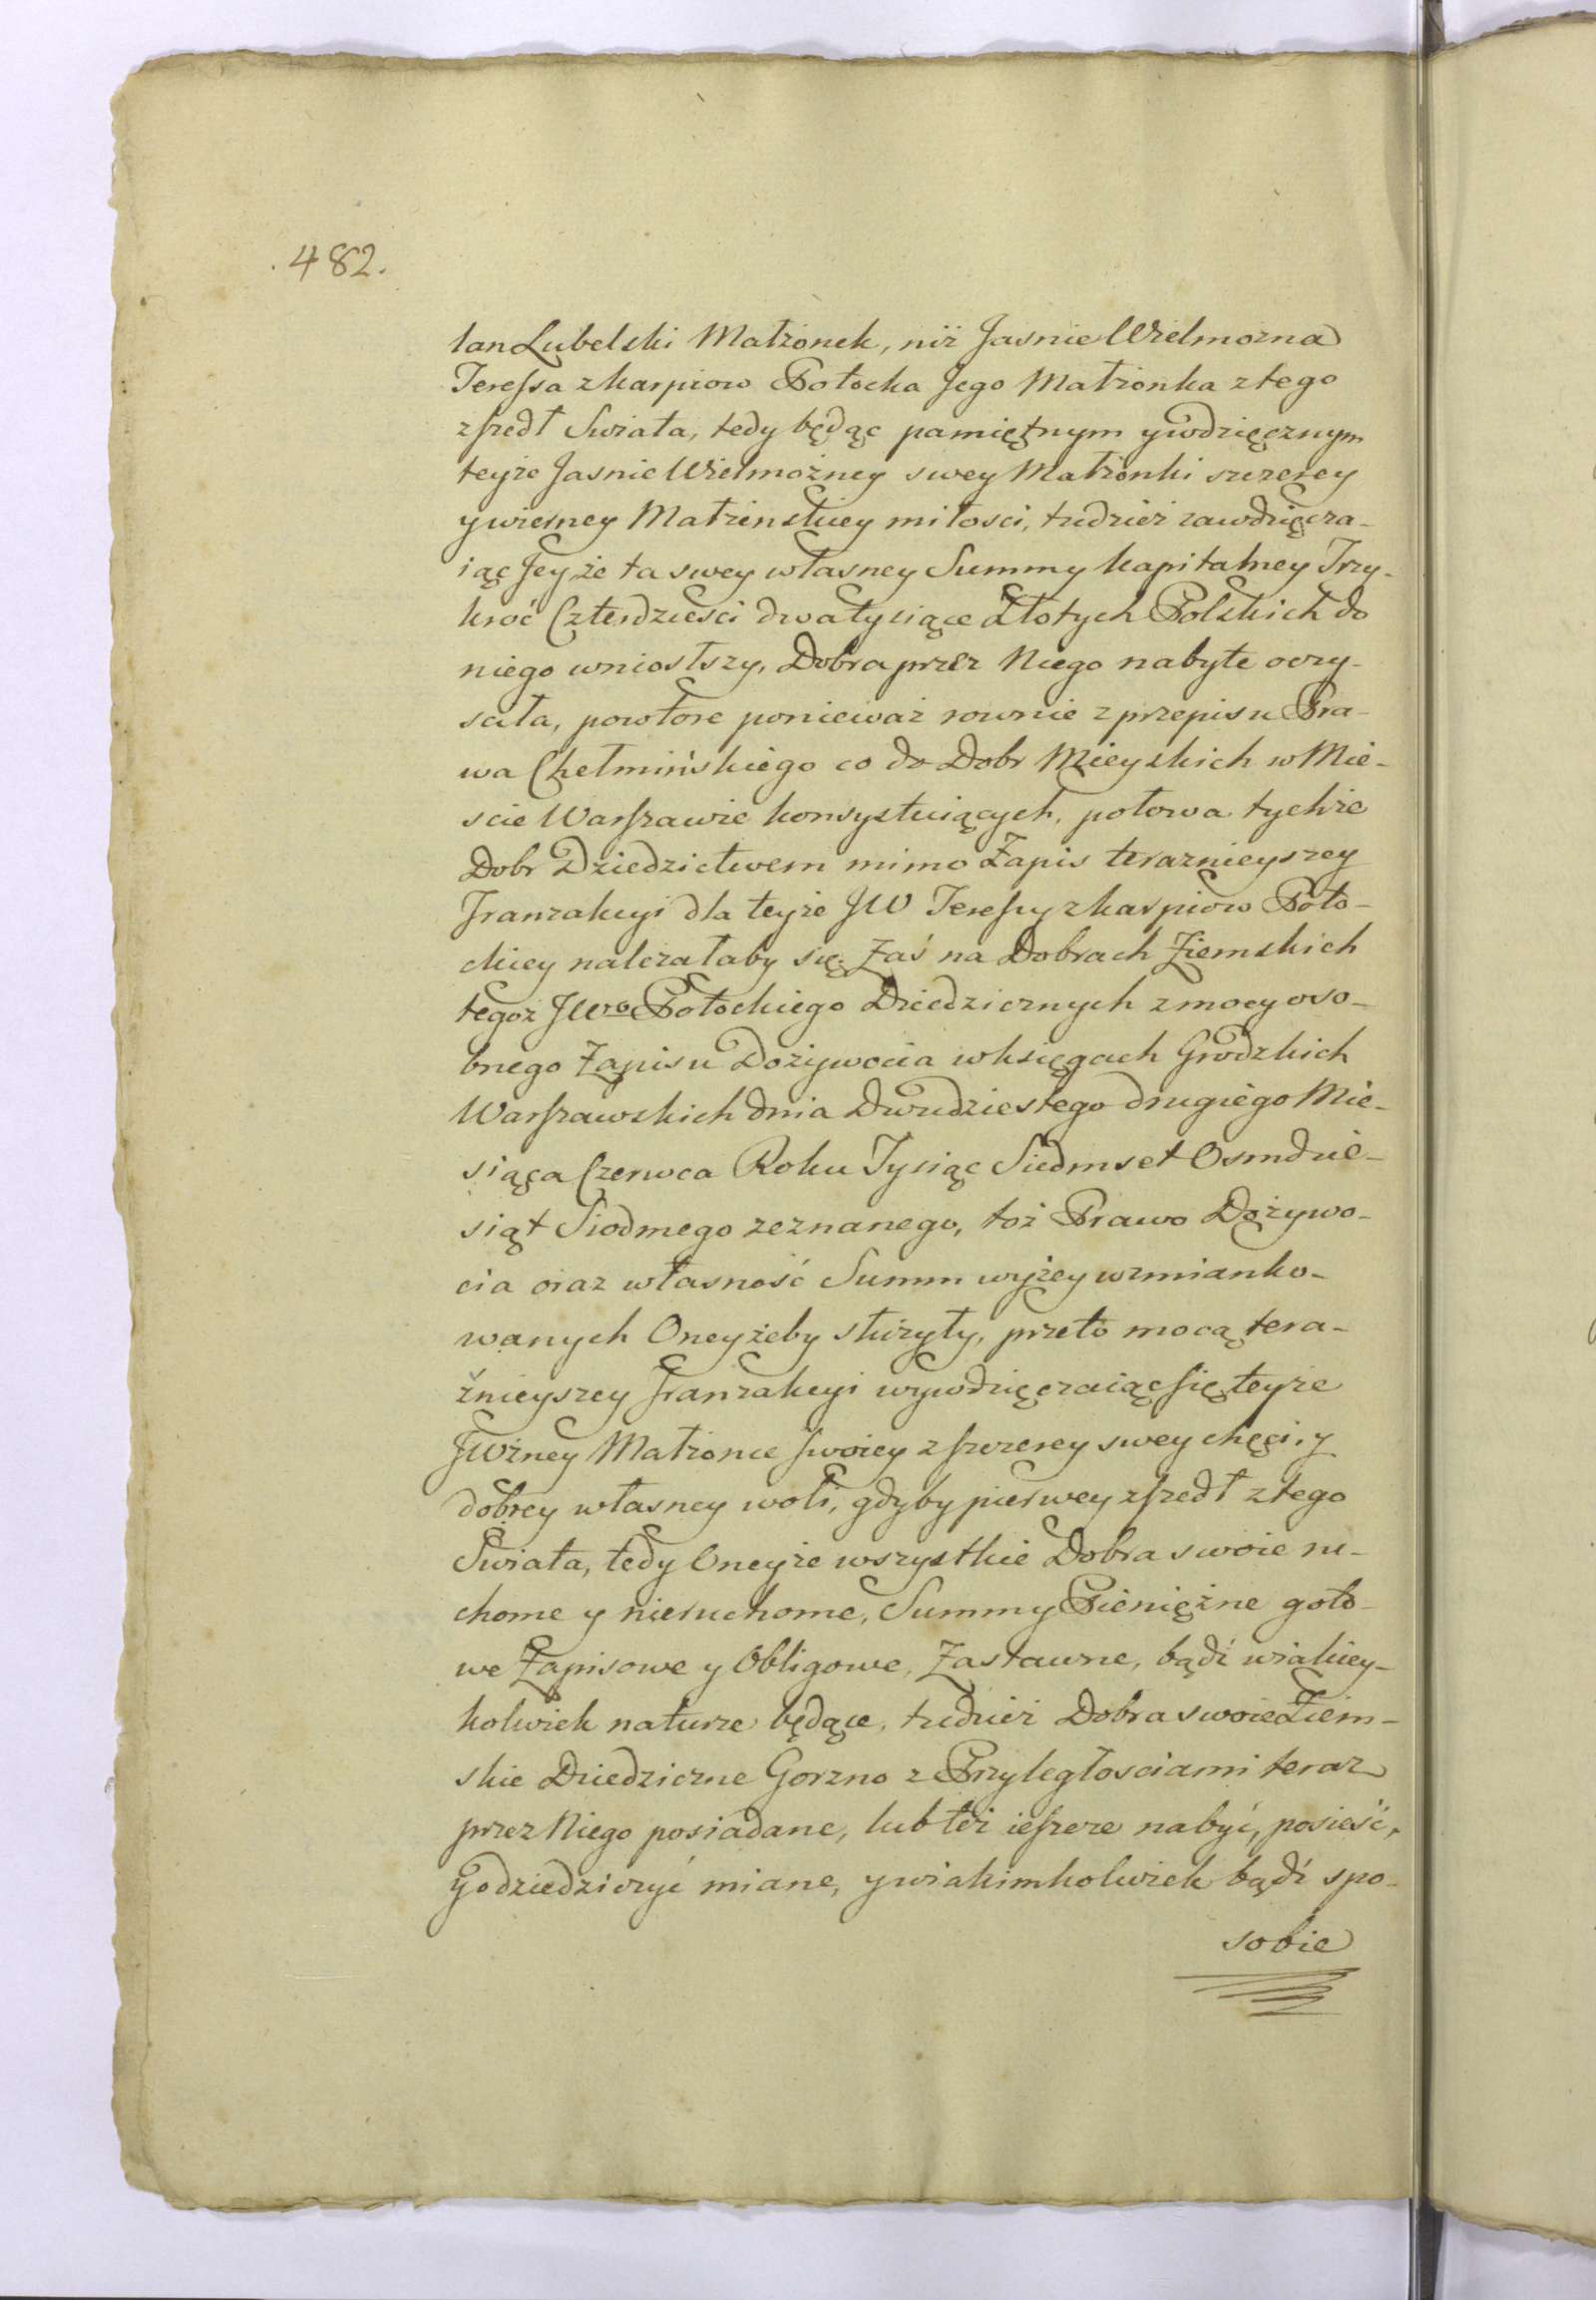 .482.
lan Lubelski Małżonek, niż Jasnie Wielmożna
Teressa z Karpiow Potocka Jego Małżonka z tego
zszedł Swiata, tedy będąc pamiętnym y wdzięcznym
teyże Jasnie Wielmożney swey Małżonki szczerey
y wierney Małżenskiey miłosci, tudzież zawdzięcza-
iąc Jey, że ta swey własney Summy kapitalney Trzy-
kroć Czterdziesci dwa tysiące Złotych Polskich do
niego wniosłszy, Dobra przez Niego nabyte oczy-
sciła, powtore ponieważ rownie z przepisu Pra-
wa Chełmińskiego co do Dobr Mieyskich w Mie-
scie Warszawie konsystuiących, połowa tychże
Dobr Dziedzictwem mimo Zapis teraznieyszey
Tranzakcyi dla teyże JW Teressy z Karpiow Poto-
ckiey należałaby się. Zaś na Dobrach Ziemskich
tegoż JWgo Potockiego Dziedzicznych z mocy oso-
bnego Zapisu Dożywocia w księgach Grodzkich
Warszawskich dnia Dwudziestego drugiego Mie-
siąca Czerwca Roku Tysiąc Siedmset Osmdzie-
siąt Siodmego zeznanego, toż Prawo Dożywo-
cia oraz własność Summ wyżey wzmianko-
wanych Oneyżeby służyły, przeto mocą tera-
źnieyszey Tranzakcyi wywdzięczaiąc się teyże
JWżney Małżonce swoiey z szczerey swey chęci, y
dobrey własney woli, gdyby pierwey zszedł z tego
Swiata, tedy Oneyże wszystkie Dobra swoie ru-
chome y nieruchome, Summy Pieniężne goto-
we Zapisowe y Obligowe, Zastawne, bądź wiakiey-
kolwiek naturze będące, tudzież Dobra swoie Ziem-
skie Dziedziczne Gorzno z Przyległosciami teraz
przez Niego posiadane, lub też ieszcze nabyć, posieść,
y odziedziczyć miane, y wiakimkolwiek bądź spo-
sobie